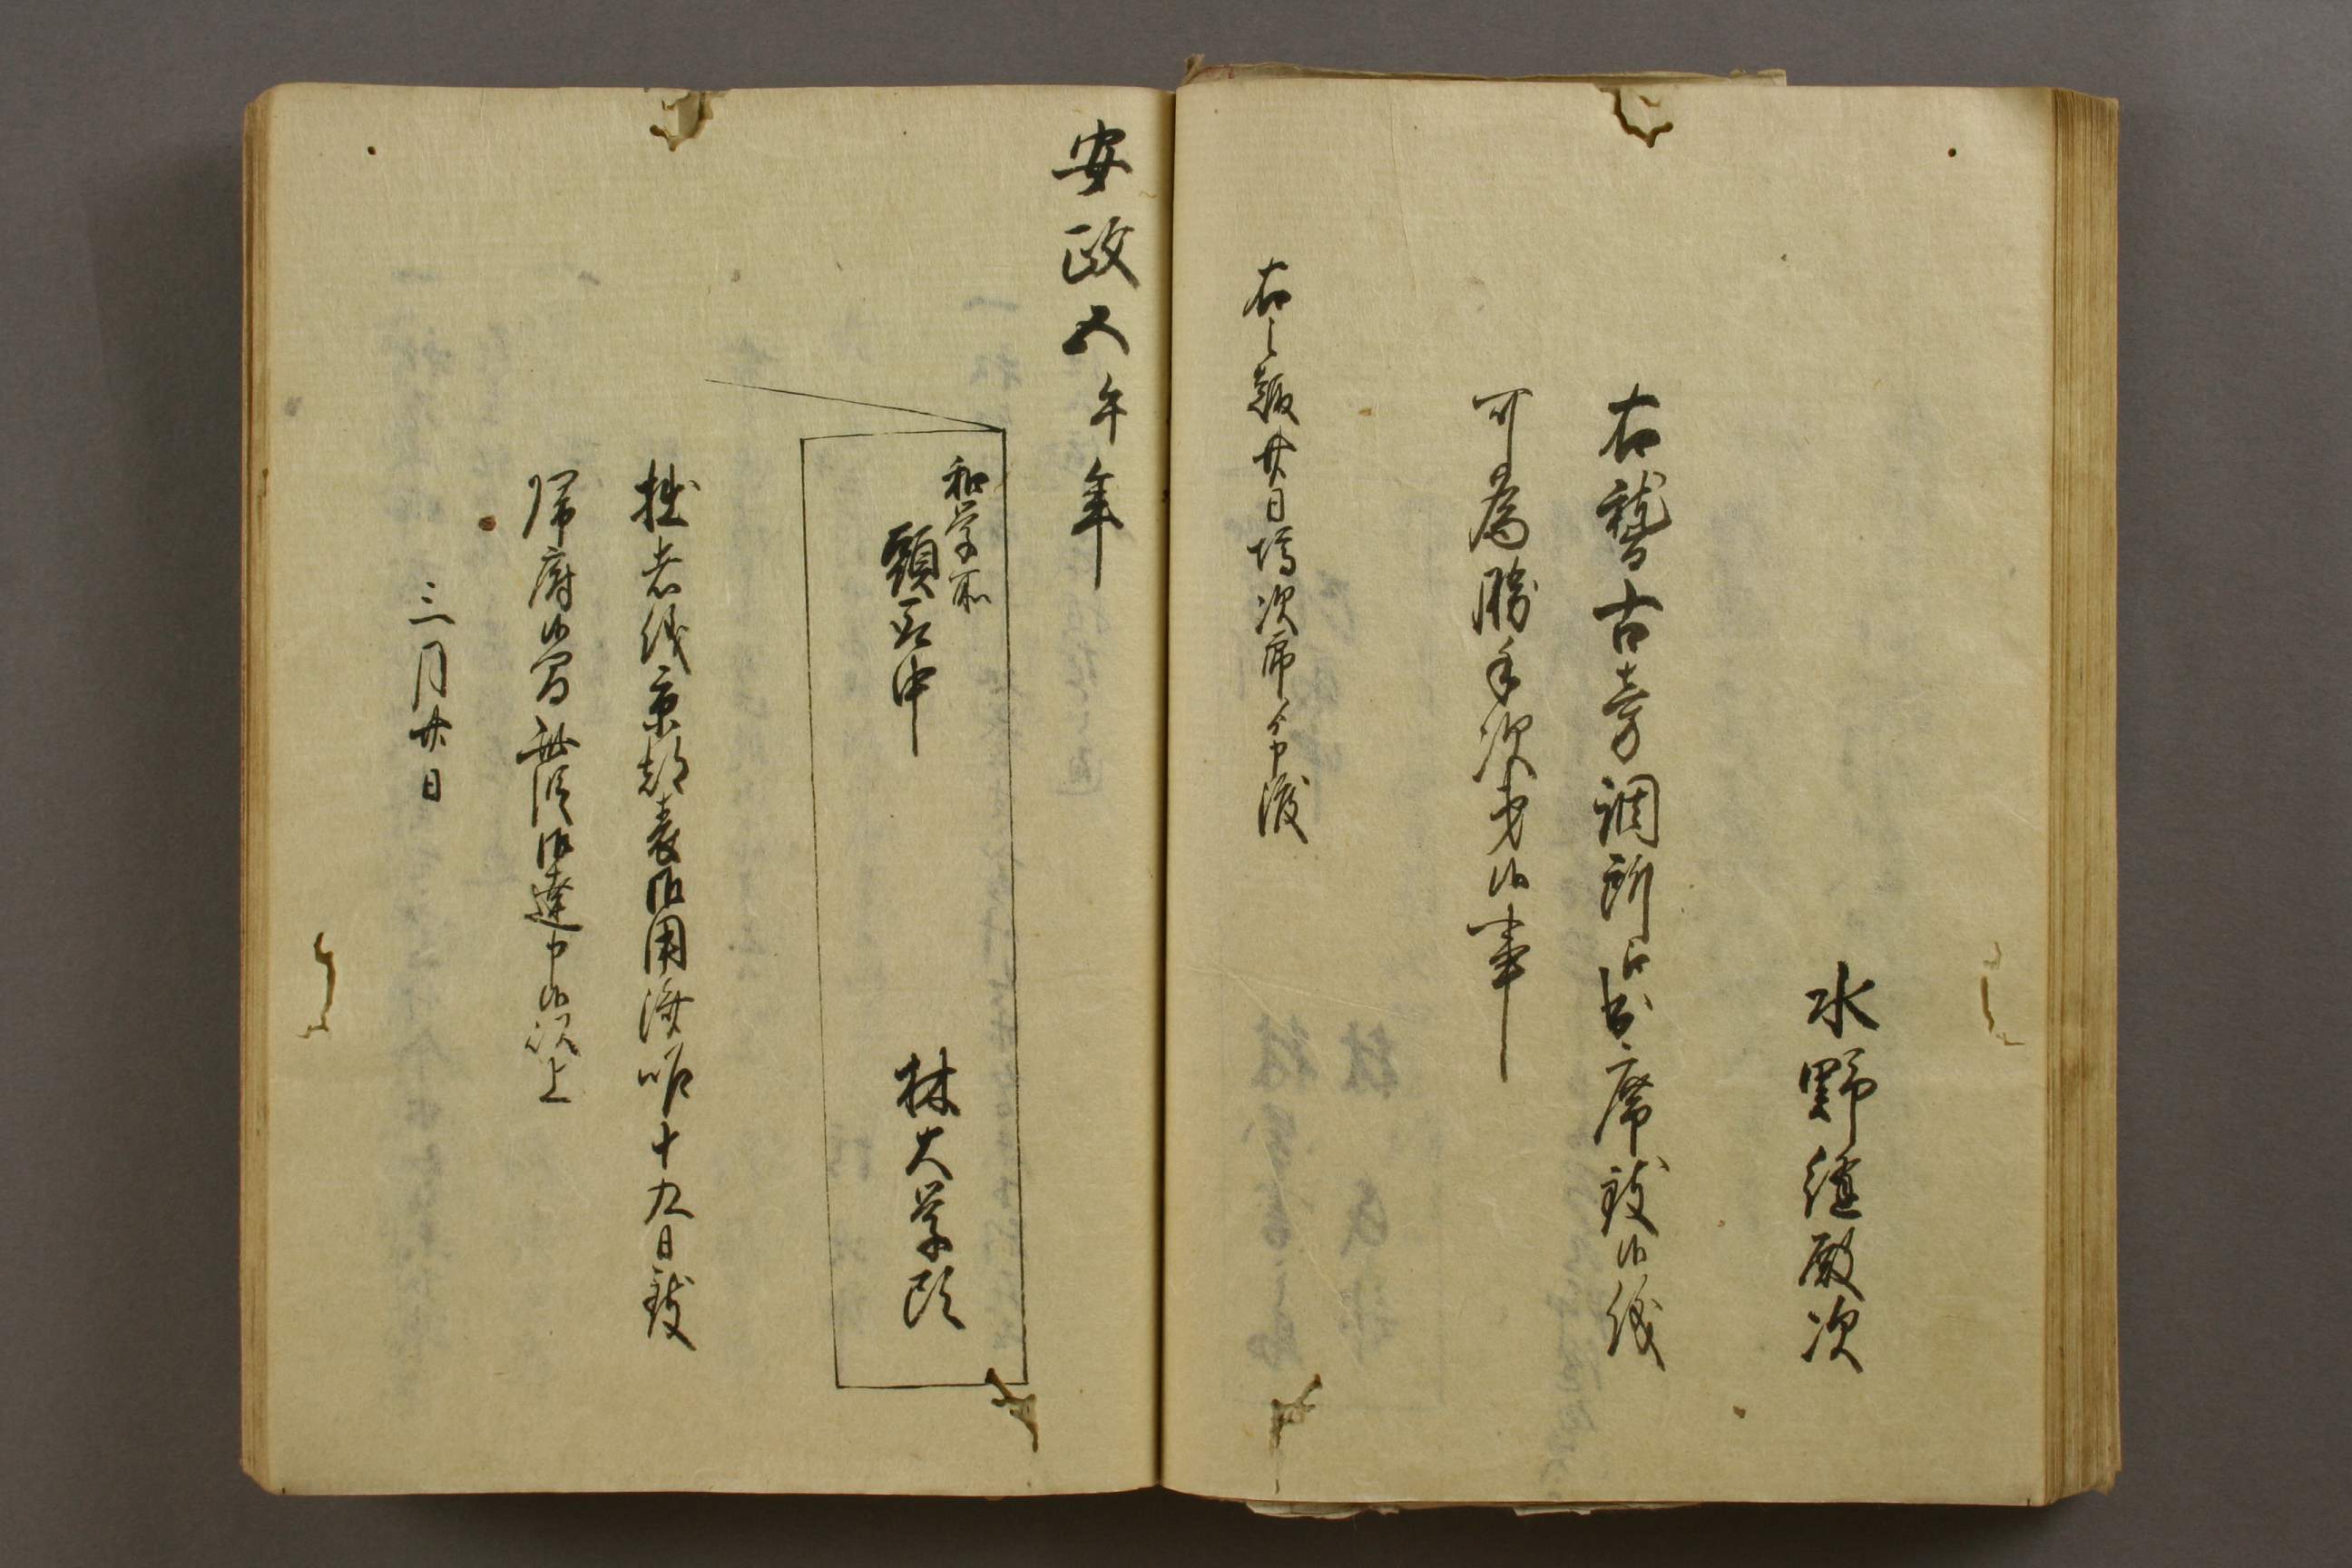 水野縫殿次
右稽古旁調所江出席致候儀
可為勝手次第候事
右之趣廿日塙次席へ申渡
安政五午年
和学所
頭取中
林大学頭
拙者儀京都表御用済昨十九日致
帰府候間此段御達申候以上
三月廿日